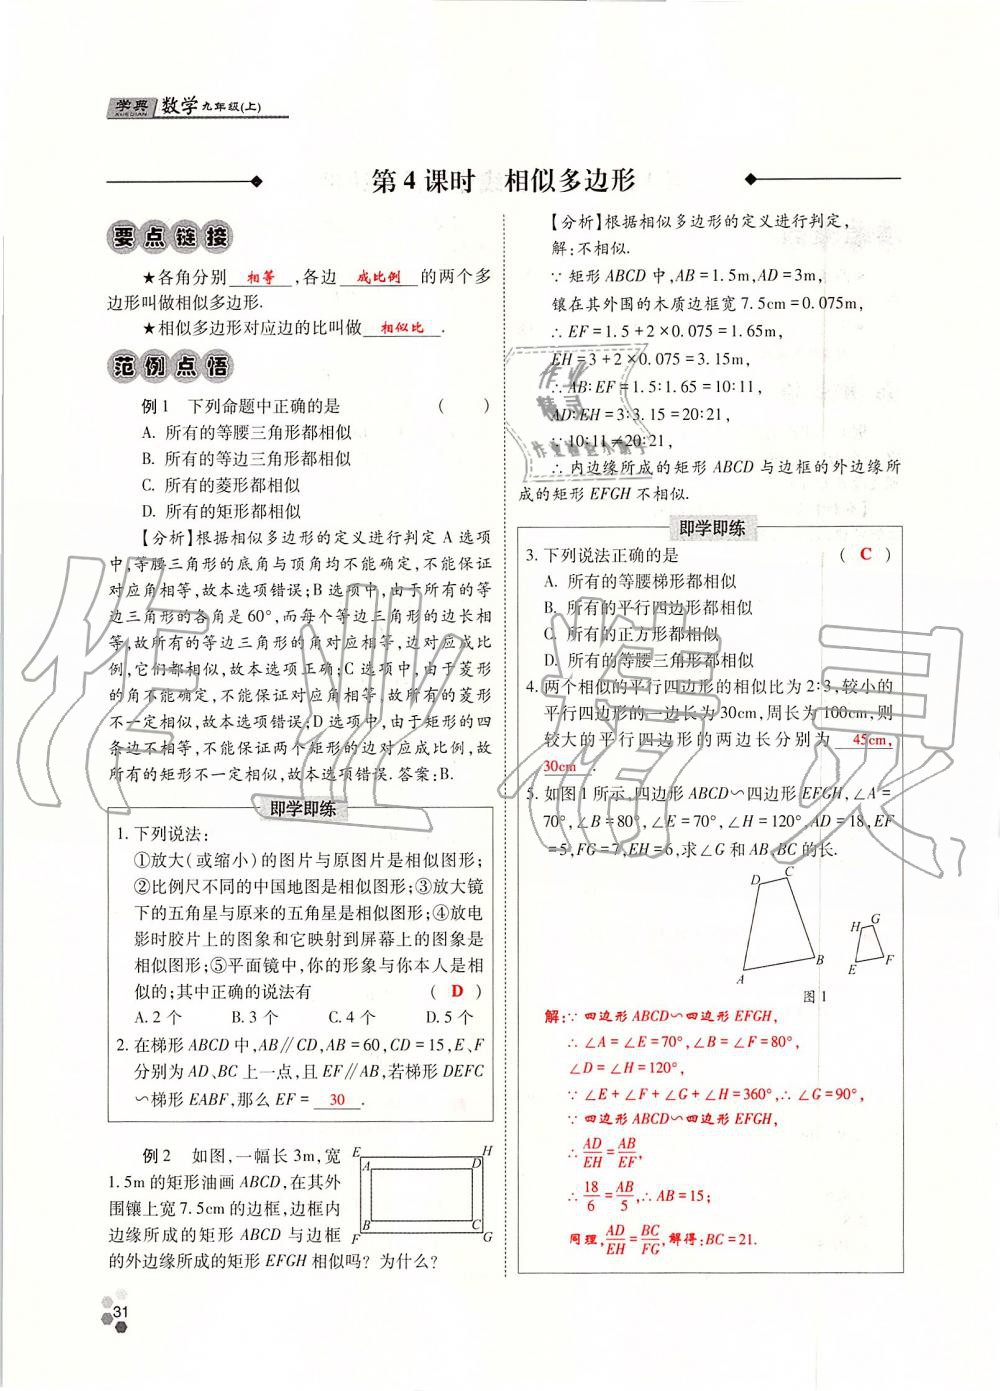 学典 数学 九年级(上)
XUEDIAN
第4课时 相似多边形
要点链接
★各角分别 相等 ,各边 成比例 的两个多
边形叫做相似多边形.
★相似多边形对应边的比叫做 相似比 .
范例点悟
例1 下列命题中正确的是 ( )
A. 所有的等腰三角形都相似
B. 所有的等边三角形都相似
C. 所有的菱形都相似
D. 所有的矩形都相似
【分析】根据相似多边形的定义进行判定A选项
中,等腰三角形的底角与顶角均不能确定,不能保证
对应角相等,故本选项错误;B选项中,由于等边三
边三角形的各角是60°,而每个等边三角形的边长相
等,故所有的等边三角形的角对应相等,边对应成比
例,它们都相似,故本选项正确;C选项中,由于菱形
的角不能确定,不能保证对应角相等,故所有的菱形
不一定相似,故本选项错误;D选项中,由于矩形的四
条边不相等,不能保证两个矩形的边对应成比例,故
所有的矩形不一定相似,故本选项错误.答案:B.
即学即练
1. 下列说法:
①放大(或缩小)的图片与原图片是相似图形;
②比例尺不同的中国地图是相似图形;③放大镜
下的五角星与原来的五角星是相似图形;④放电
影时胶片上的图象和它映射到屏幕上的图象是
相似图形;⑤平面镜中,你的形象与你本人是相
似的;其中正确的说法有 ( D )
A. 2个 B. 3个 C. 4个 D. 5个
2. 在梯形ABCD中,AB∥CD,AB=60,CD=15,E、F
分别为AD、BC上一点,且EF∥AB,若梯形DEFC
∽梯形EABF,那么EF= 30 .
例2 如图,一幅长3m,宽
1.5m的矩形油画ABCD,在其外
围镶上宽7.5cm的边框,边框内
边缘所成的矩形ABCD与边框
的外边缘所成的矩形EFGH相似吗? 为什么?
E H
A D
B C
F G
31
【分析】根据相似多边形的定义进行判定,
解:不相似.
∵矩形ABCD中,AB=1.5m,AD=3m,
镶在其外围的木质边框宽7.5cm=0.075m,
∴EF=1.5+2×0.075=1.65m,
EH=3+2×0.075=3.15m,
∴AB:EF=1.5:1.65=10:11,
AD:EH=3:3.15=20:21,
∵10:11≠20:21,
∴内边缘所成的矩形ABCD与边框的外边缘所
成的矩形EFGH不相似.
即学即练
3. 下列说法正确的是 ( C )
A. 所有的等腰梯形都相似
B. 所有的平行四边形都相似
C. 所有的正方形都相似
D. 所有的等腰三角形都相似
4. 两个相似的平行四边形的相似比为2:3,较小的
平行四边形的一边长为30cm,周长为100cm,则
较大的平行四边形的两边长分别为 45cm,
30cm .
5. 如图1所示,四边形ABCD∽四边形EFGH,∠A=
70°,∠B=80°,∠E=70°,∠H=120°,AD=18,EF
=5,FG=7,EH=6,求∠G和AB、BC的长.
D C
H G
A B
E F
图1
解:∵四边形ABCD∽四边形EFGH,
∴∠A=∠E=70°,∠B=∠F=80°,
∠D=∠H=120°,
∵∠E+∠F+∠G+∠H=360°,∴∠G=90°,
∵四边形ABCD∽四边形EFGH,
∴AD/EH=AB/EF,
∴18/6=AB/5,∴AB=15;
同理,AD/EH=BC/FG,解得:BC=21.
作业精灵